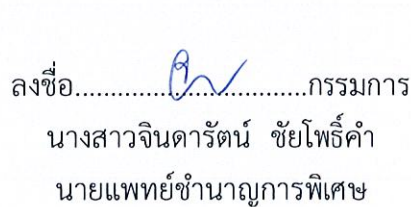 ลงชื่อ................................กรรมการ
นางสาวจินดารัตน์ ชัยโพธิ์คำ
นายแพทย์ชำนาญการพิเศษ